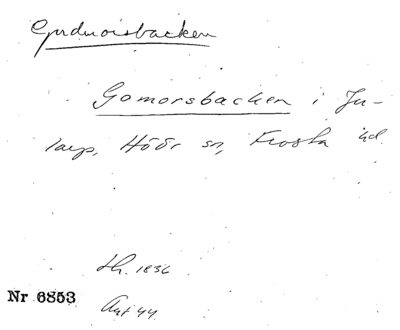 Gudmorsbacken
Gomorsbacken i Ju-
larp, Höör sn, Frosta hd.
Lh. 1836
Nr 6853
Akt 44.